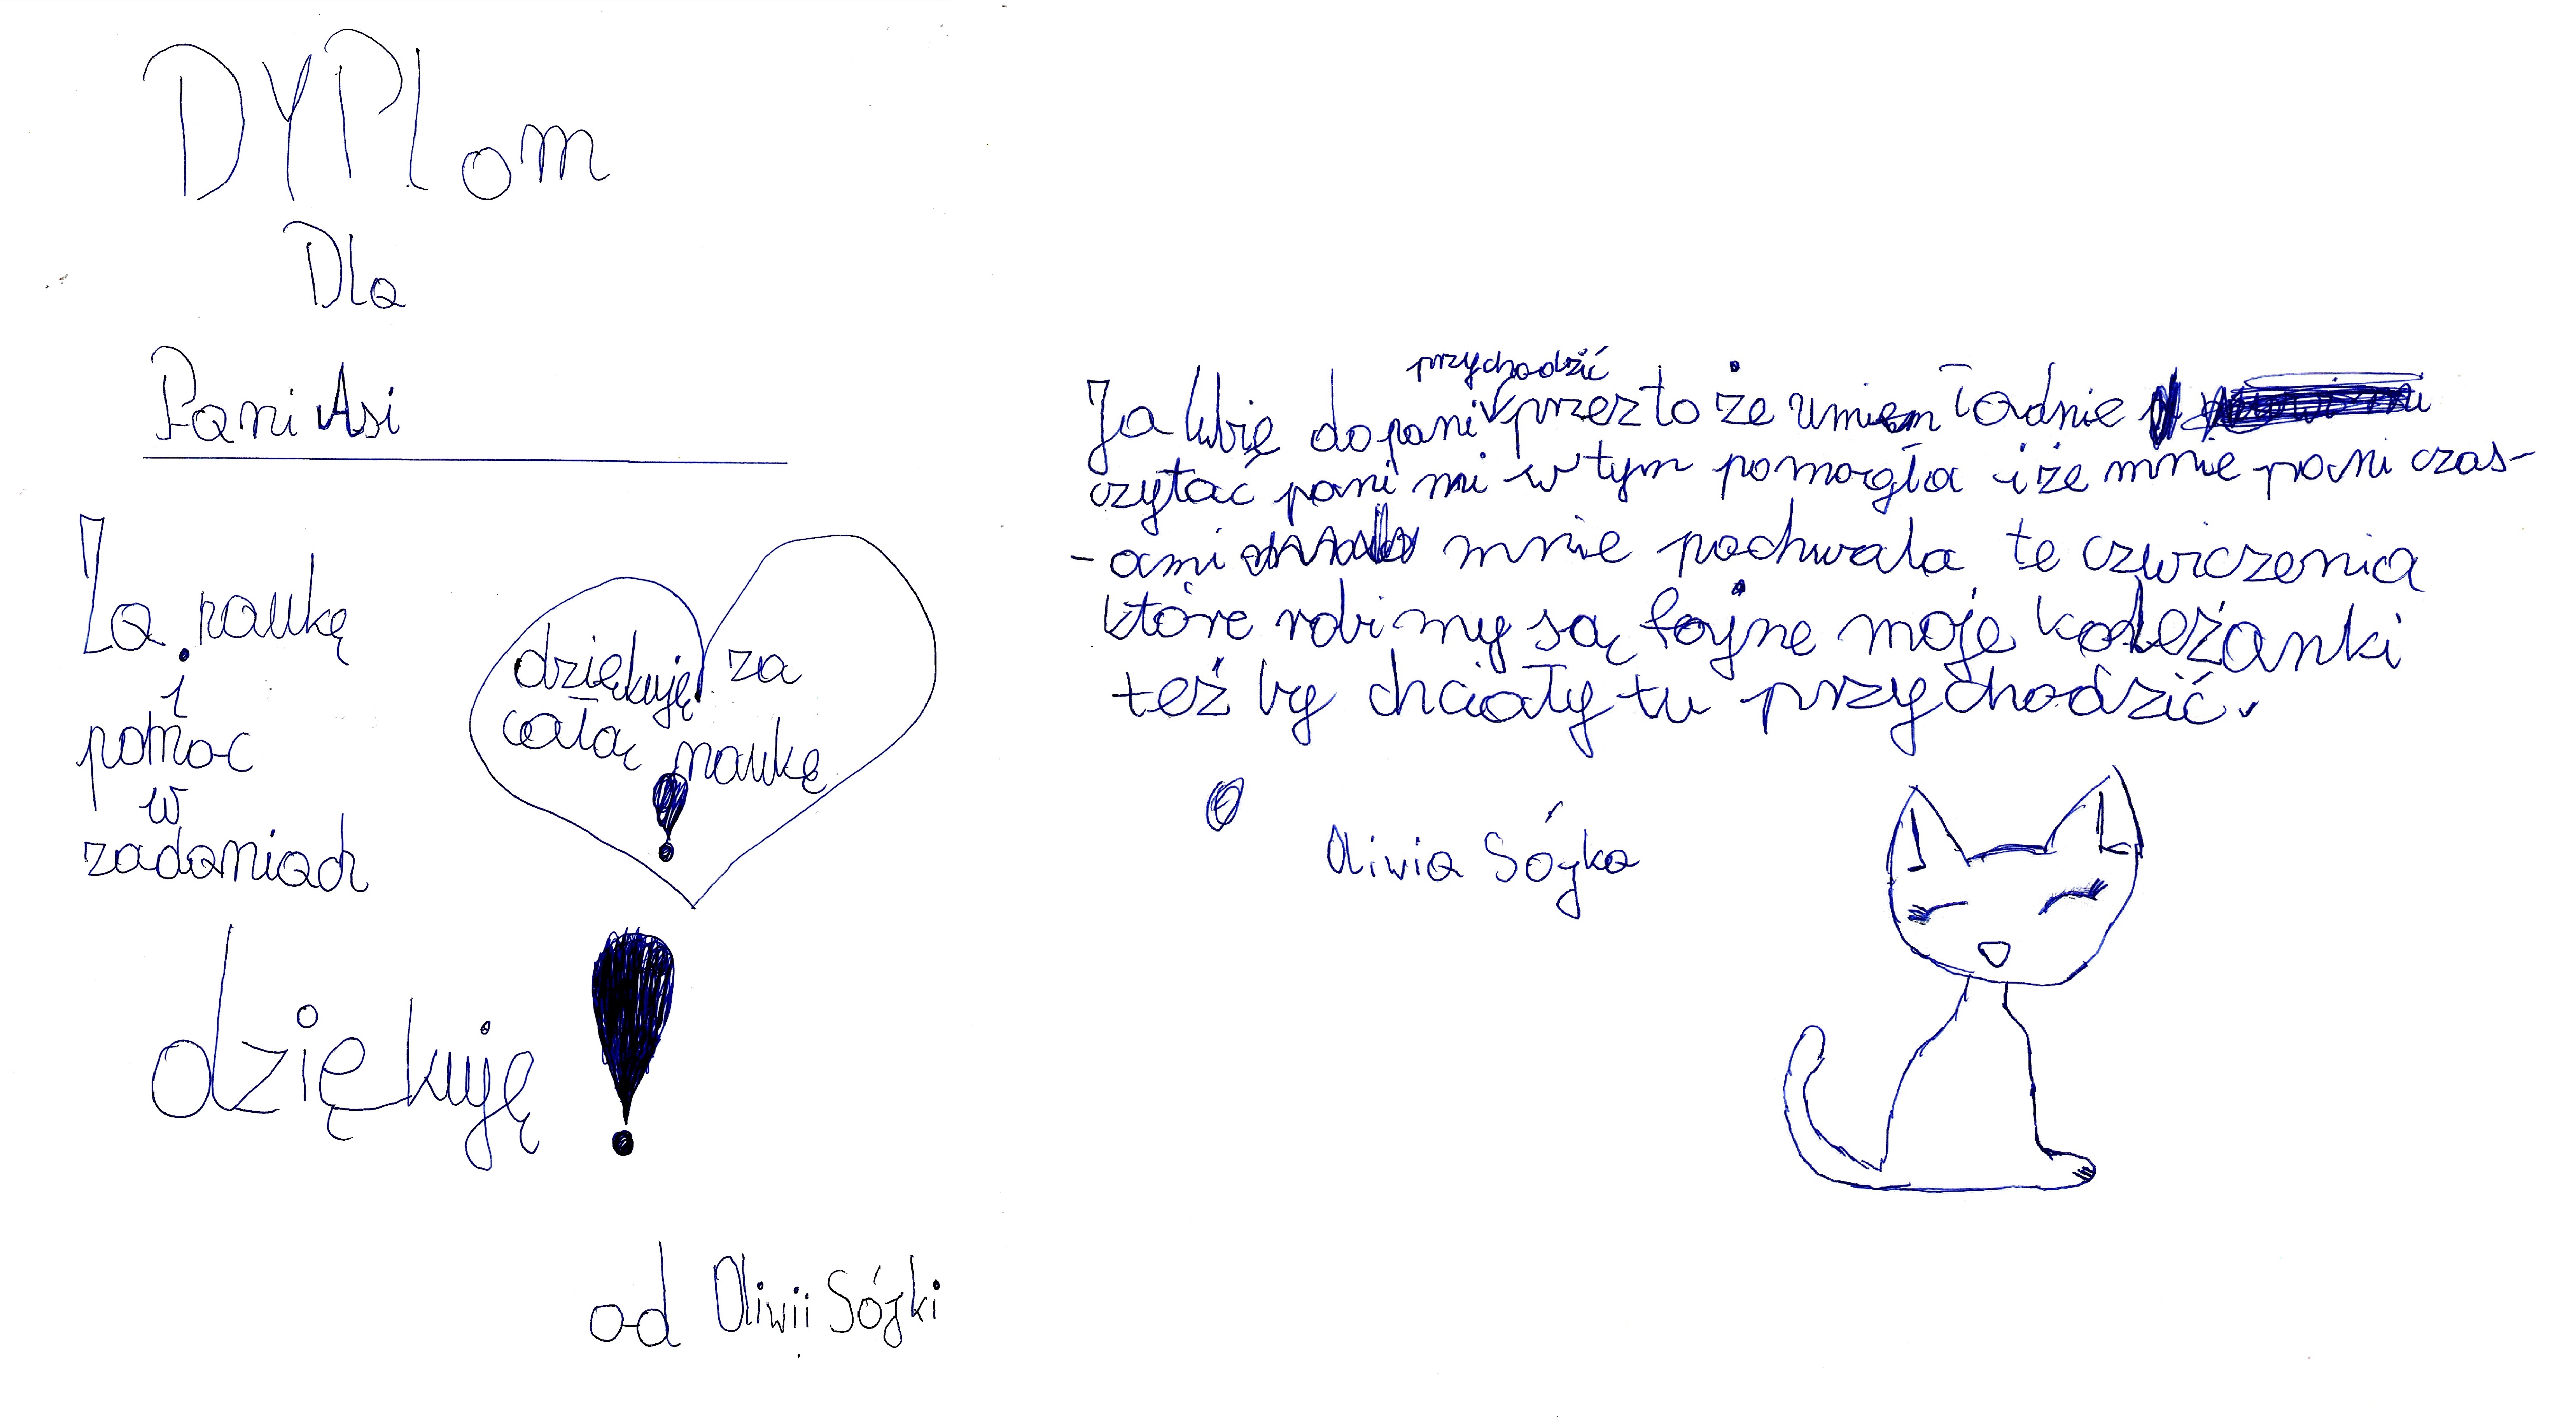 DYPlom
Dla
Pani Asi
Za naukę
i
pomoc
w
zadaniach
dziękuję za
całą naukę
!
dziękuję !
od Oliwii Sójki
przychodzić
Ja lubię do pani przez to że umiem ładnie
czytać pani mi w tym pomogła i że mnie pani czas-
-ami mnie pochwala te czwiczenia
które robimy są fajne moje koleżanki
też by chciały tu przychodzić.
Oliwia Sójka